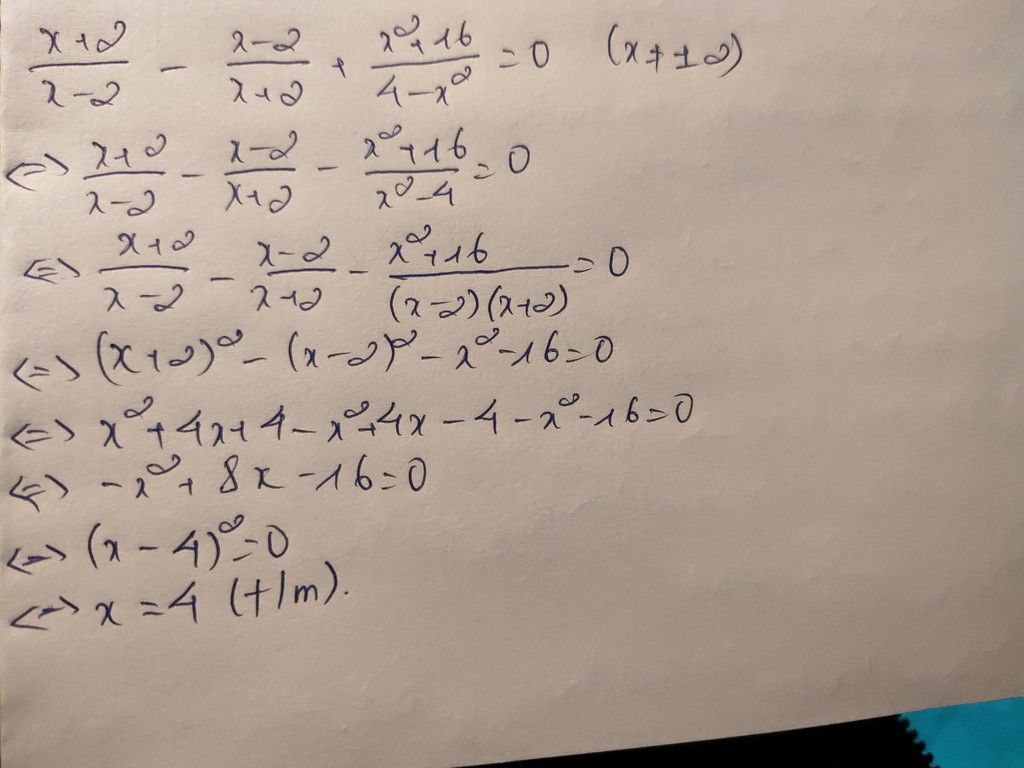 \frac{x+2}{x-2} - \frac{x-2}{x+2} + \frac{x^2+16}{4-x^2} = 0 (x ≠ ±2)
<=> \frac{x+2}{x-2} - \frac{x-2}{x+2} - \frac{x^2+16}{x^2-4} = 0
<=> \frac{x+2}{x-2} - \frac{x-2}{x+2} - \frac{x^2+16}{(x-2)(x+2)} = 0
<=> (x+2)^2 - (x-2)^2 - x^2 - 16 = 0
<=> x^2 + 4x + 4 - x^2 + 4x - 4 - x^2 - 16 = 0
<=> -x^2 + 8x - 16 = 0
<=> (x - 4)^2 = 0
<=> x = 4 (t/m).